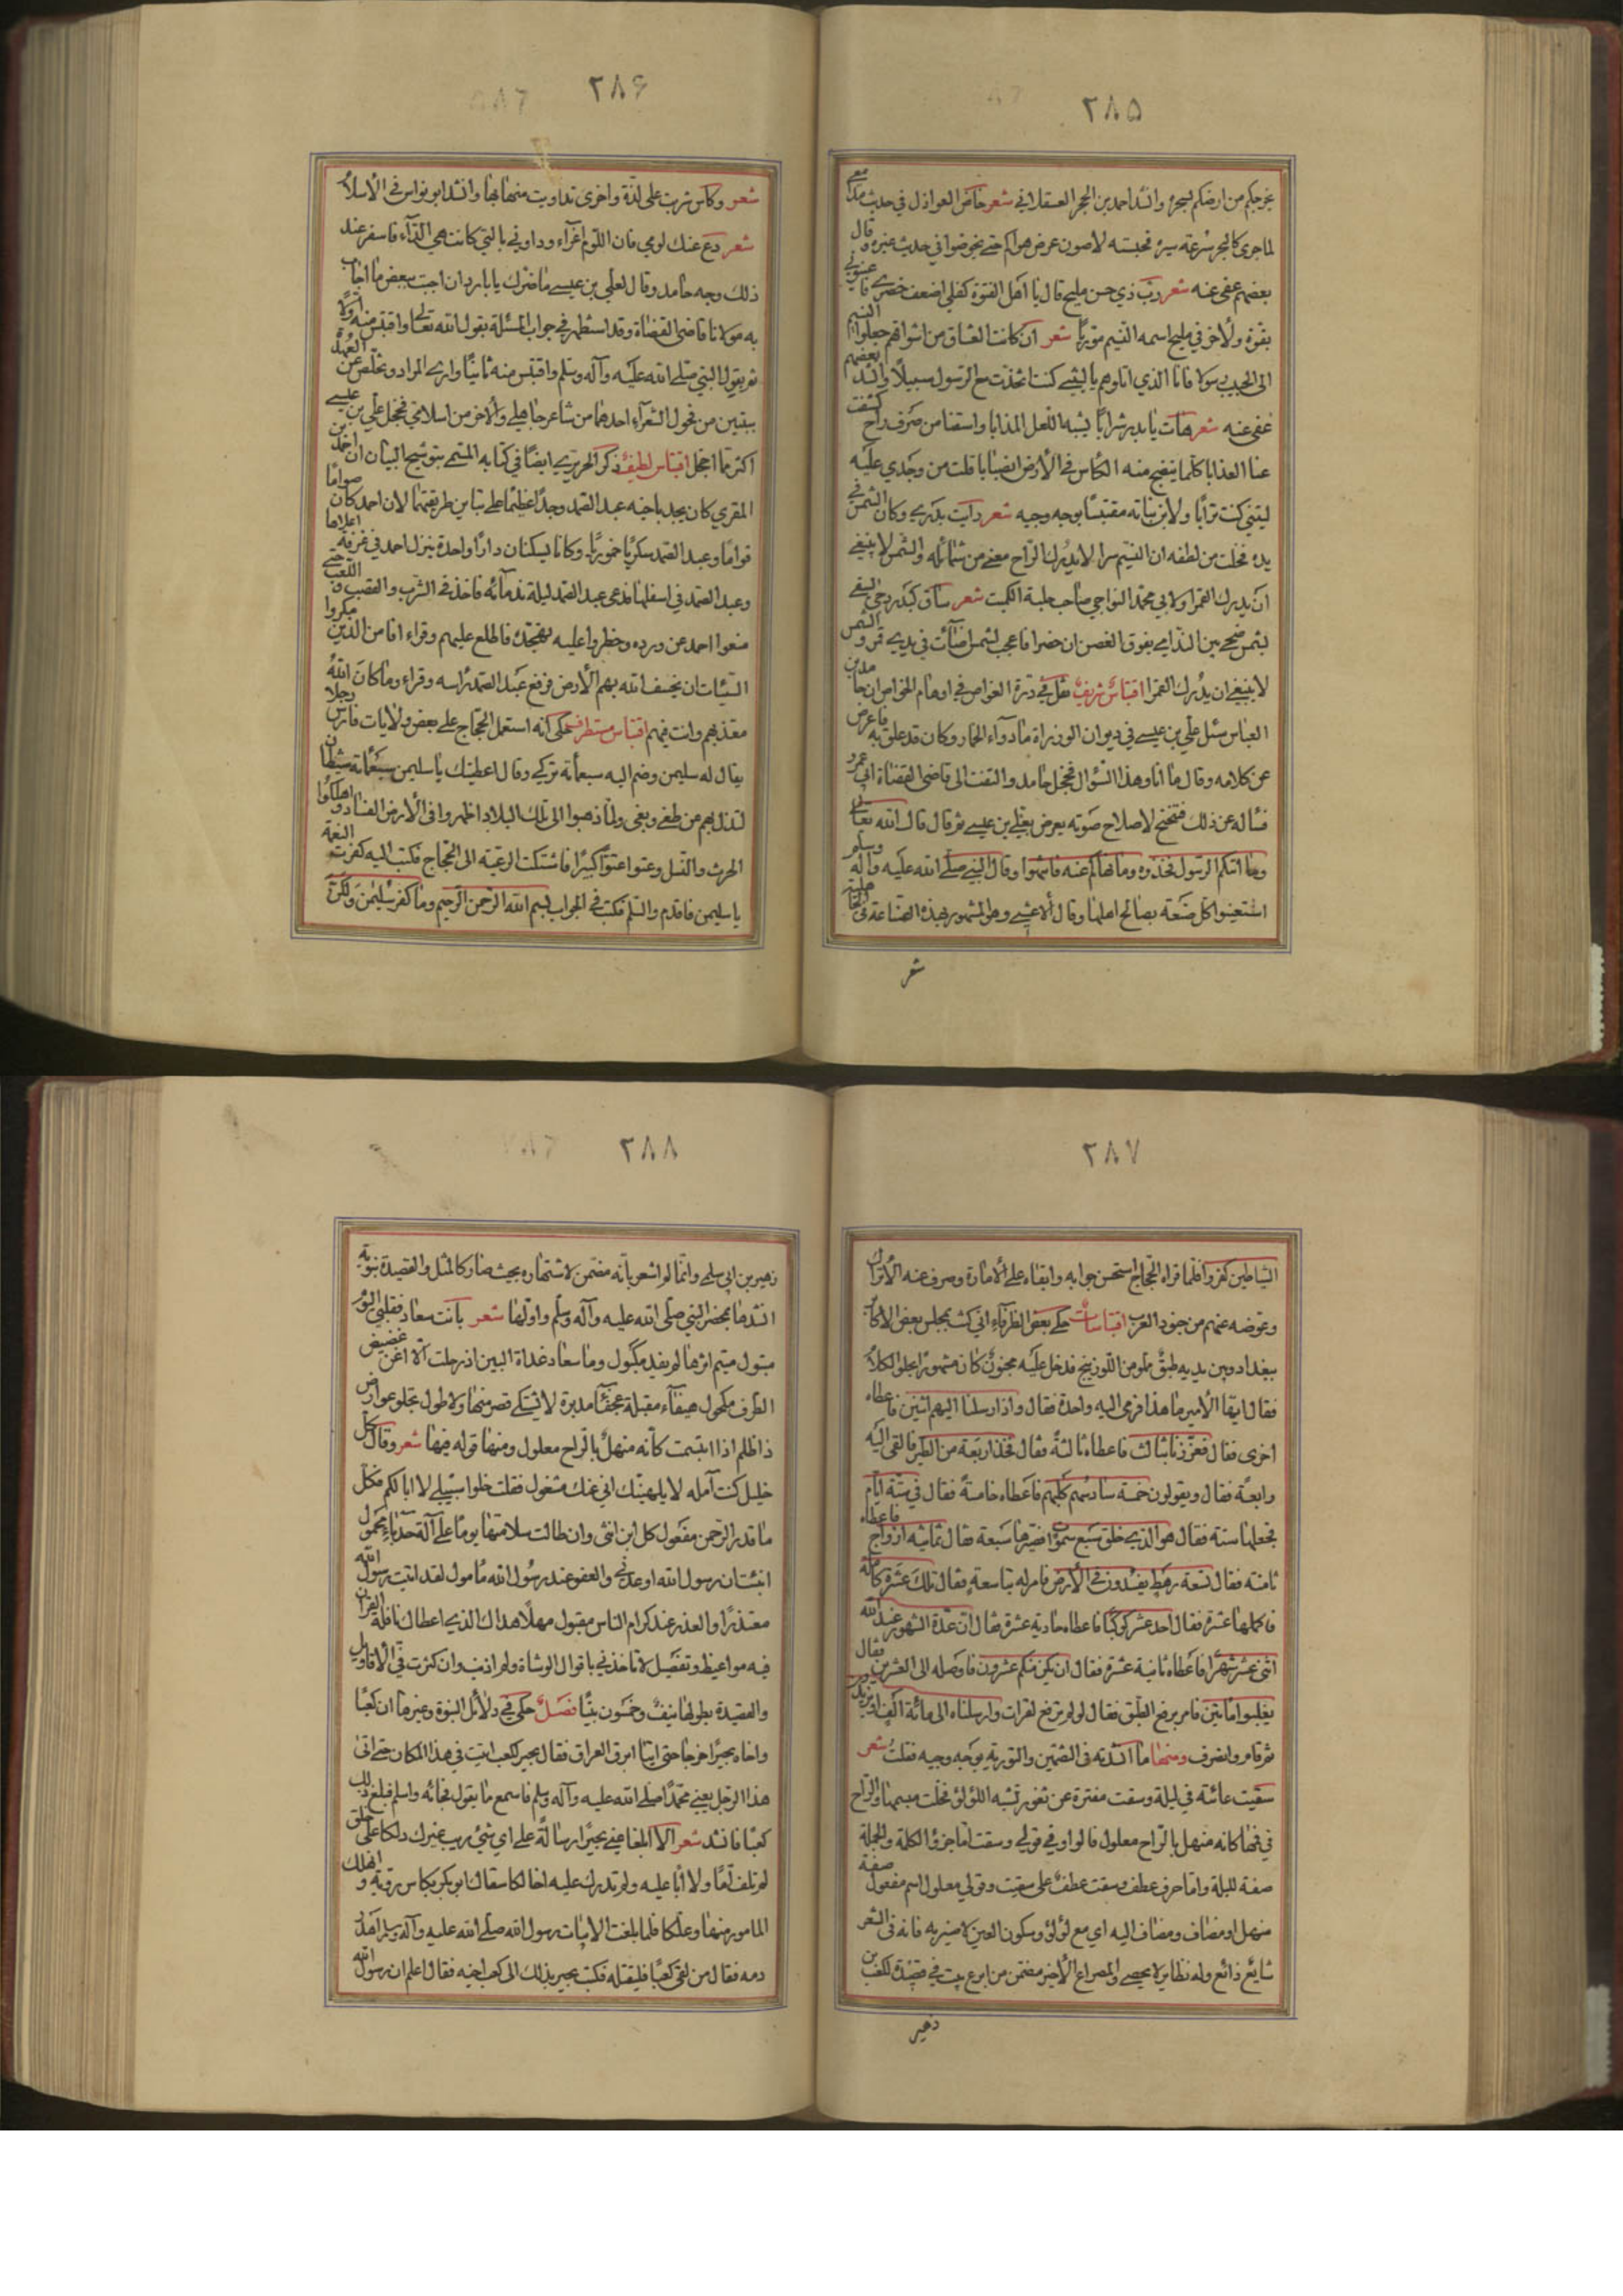 ٢٨٥
يخرجكم من ارضكم بسحره وانشد احمد بن الحجر العسقلاني شعر خاض العواذل في حديث مدامعي
لما جرى كالبحر سرعة سيره فحبسته لاصون عرض هواكم حتى يخوضوا في حديث غيره وقال
بعضهم عفى عنه شعر ربّ ذي حسن مليح قال يا اهل الفتوة كفلي اضعف خصري فاعينوني
بقوة ولاخر في مليح اسمه النسيم مورّيا شعر ان كانت العشاق من اشواقهم جعلوا النسيم
الى الحبيب رسولا فانا الذي اتلوهم يا ليتني كنت اتخذت مع الرسول سبيلا وانشد بعضهم
عفى عنه شعر هات يا بدر شرابا يشبه اللعل المذابا واسقنا من صرف راح كشفت
عنا العذابا كلما ينضح منه الكأس في الارض نصيبا قلت من وجدي عليه
ليتني كنت ترابا ولابن نباته مقتبسا بوجه وجيه شعر رايت بكري وكان الشمس في
يده فخلت من لطفه ان النسيم سرا لا يدرك الراح معنى من شمائله والشمس لا ينبغي
ان يدرك القمرا ولابي محمد النواجي صاحب حلبة الكميت شعر ساق كبدر دجى يسعى
بشمس ضحى بين الندامى يفوق الغصن ان خطرا فاعجب لشمس اضآئت في يدي قمر والشمس
لا ينبغي ان يدرك القمرا اقتباس شريف نقل في درة الغواص في اوهام الخواص ان حامد بن
العباس سئل علي بن عيسى في ديوان الوزراة ما دوآء الخمار وكان قد علق به فاعرض
عن كلامه وقال ما انا وهذا السؤال فخجل حامد والتفت الى قاضي القضاة ابي عمرو
فسأله عن ذلك فتنحنح لاصلاح صوته يعرض بعلي بن عيسى ثم قال قال الله تعالى
وما اتيكم الرسول فخذوه وما نهاكم عنه فانتهوا وقال النبي صلى الله عليه وآله وسلم
استعينوا كل صنعة بصالح اهلها وقال الاعشى وهو المشهور بهذه الصناعة في الجاهلية
شعر
٢٨۶
شعر وكأس شربت على لذة واخرى تداويت منها بها وانشد ابو نواس في الاسلام
شعر دع عنك لومي فان اللوم اغرآء وداوني بالتي كانت هي الدآء فاسفر عند
ذلك وجه حامد وقال لعلي بن عيسى ما ضرك يا بارد ان اجبت ببعض ما اجاب
به مولانا قاضي القضاة وقد استظهر في جواب المسئلة بقول الله تعالى واقتبس منه اولا
ثم بقول النبي صلى الله عليه وآله وسلم واقتبس منه ثانيا وارى المراد وتخلص عن العهدة
ببيتين من فحول الشعرآء احدهما من شاعر جاهلي والآخر من اسلامي فخجل علي بن عيسى
اكثر مما اخجل اقتباس لطيف ذكر الحريري ايضا في كتابه المسمى بتوشيح البيان ان احمد بن
المقري كان يجد باخيه عبد الصمد وجدا عظيما على تباين طريقتهما لان احمد كان صواما
قواما وعبد الصمد سكيرا خميرا وكانا يسكنان دارا واحدة ينزل احمد في غرفة اعلاها
وعبد الصمد في اسفلها فدعى عبد الصمد ليلة ندمائه فاخذ في الشرب والقصب واللعب حتى
منعوا احمد عن ورده وحظروا عليه تهجده فاطلع عليهم وقراء افامن الذين مكروا
السيئات ان يخسف الله بهم الارض فرفع عبد الصمد رأسه وقراء وما كان الله
معذبهم وانت فيهم اقتباس مستطرف حكى انه استعمل الحجاج على بعض ولايات فارس رجلا
يقال له سليمن وضم اليه سبعمأته تركي وقال اعطيتك يا سليمن سبعمأته شيطان
لتذل بهم عن طغى وبغى ولما ذهبوا الى تلك البلاد اظهروا في الارض الفساد واهلكوا
الحرث والنسل وعتوا عتوا كبيرا فاشتكت الرعية الى الحجاج فكتب اليه كفرت النعمة
يا سليمن فاقدم والسلم فكتب في الجواب بسم الله الرحمن الرحيم وما كفر سليمن ولكن
٢٨٧
الشياطين كفروا فلما قراه الحجاج استحسن جوابه وابقاه على الامارة وصرف عنه الاتراك
وعوضه عنهم من جنود العرب اقتباسات حكى بعض الظرفاء اني كنت بمجلس بعض الاكابر
ببغداد وبين يديه طبق مملو من اللوزينج فدخل عليه مجنون كان مشهورا بحلو الكلام
فقال ايها الامير ما هذا فرمى اليه واحدة فقال واذ ارسلنا اليهم اثنين فاعطاه
اخرى فقال فعززنا بثالث فاعطاه ثالثة فقال فخذ اربعة من الطير فالقى اليه
رابعة فقال ويقولون خمسة سادسهم كلبهم فاعطاه خامسة فقال في ستة ايام
فجعلها ستة فقال هو الذي خلق سبع سموات فصيرها سبعة فقال ثمانية ازواج فاعطاه
ثامنة فقال تسعة رهط يفسدون في الارض فامر له بتاسعة فقال تلك عشرة كاملة
فاكملها عشرة فقال احد عشر كوكبا فاعطاه حادية عشرة فقال ان عدة الشهور عند الله
اثنى عشر شهرا فاعطاه ثانية عشرة فقال ان يكن منكم عشرون فاوصله الى العشرين فقال
يغلبوا مأتين فامر برفع الطبق فقال لو لم ترفع لقرات وارسلناه الى مائة الف او يزيدون
ثم قام وانصرف ومنها ما انشدته في التضمين والتورية بوجه وجيه فقلت شعر
سقيت عائشة في ليلة وسقت مفترة عن ثغور تشبه اللؤلؤ فخلت مبسمها والراح
في فمها كانه منهل بالراح معلول قالوا وفي قولي وسقت اما جزؤ الكلمة والجملة
صفة لليلة واما حرف عطف وسقت عطف على سقيت وقولي معلول اسم مفعول صفة
منهل او مضاف ومضاف اليه اي مع لؤلؤ وسكون العين لا ضير به فانه في الشعر
شايع ذائع وله نظاير لا يحصى والمصراع الاخير مضمن من ابرع بيت في قصيدة لكعب بن
زهير
٢٨٨
زهير بن ابي سلمى وانما لو اشعر بانه مضمن لاشتهاره بحيث صار كالمثل والقصيدة نبوية
انشدها بحضر النبي صلى الله عليه وآله وسلم واولها شعر بانت سعاد فقلبي اليوم
متبول متيم اثرها لم يفد مكبول وما سعاد غداة البين اذ رحلت الا اغن غضيض
الطرف مكحول هيفآء مقبلة عجزآء مدبرة لا يشتكى قصر منها ولا طول تجلو عوارض
ذا ظلم اذا ابتسمت كأنه منهل بالراح معلول ومنها قوله فيها شعر وقال كل
خليل كنت آمله لا يلهينك اني عنك مشغول فقلت خلوا سبيلي لا ابا لكم فكل
ما قدر الرحمن مفعول كل ابن انثى وان طالت سلامتها يوما على آلة حدباء محمول
انبئت ان رسول الله اوعدني والعفو عند رسول الله مأمول لقد اتيت رسول الله
معتذرا والعذر عند كرام الناس مقبول مهلا هداك الذي اعطاك نافلة القران
فيه مواعيظ وتفصيل لا تأخذني باقوال الوشاة ولم اذنب وان كثرت في الاقاويل
والقصيدة بطولها نيف وخمسون بيتا فصل حكي في دلائل النبوة وغيرها ان كعبا
واخاه بجيرا خرجا حتى اتيا ابرق العراق فقال بجير لكعب اثبت في هذا المكان حتى اتى
هذا الرجل يعني محمدا صلى الله عليه وآله وسلم فاسمع ما يقول فجائه واسلم فبلغ ذلك
كعبا فانشد شعر الا ابلغا عني بجيرا رسالة على اي شيء ريب غيرك دلكا على خلق
لم تلف اما ولا ابا عليه ولم تدرك عليه اخا لكا سقاك ابو بكر بكاس روية وانهلك
المامور منها وعلكا فلما بلغت الابيات رسول الله صلى الله عليه وآله وسلم اهدر
دمه فقال من لقي كعبا فليقتله فكتب بجير بذلك الى كعب اخيه فقال اعلم ان رسول الله